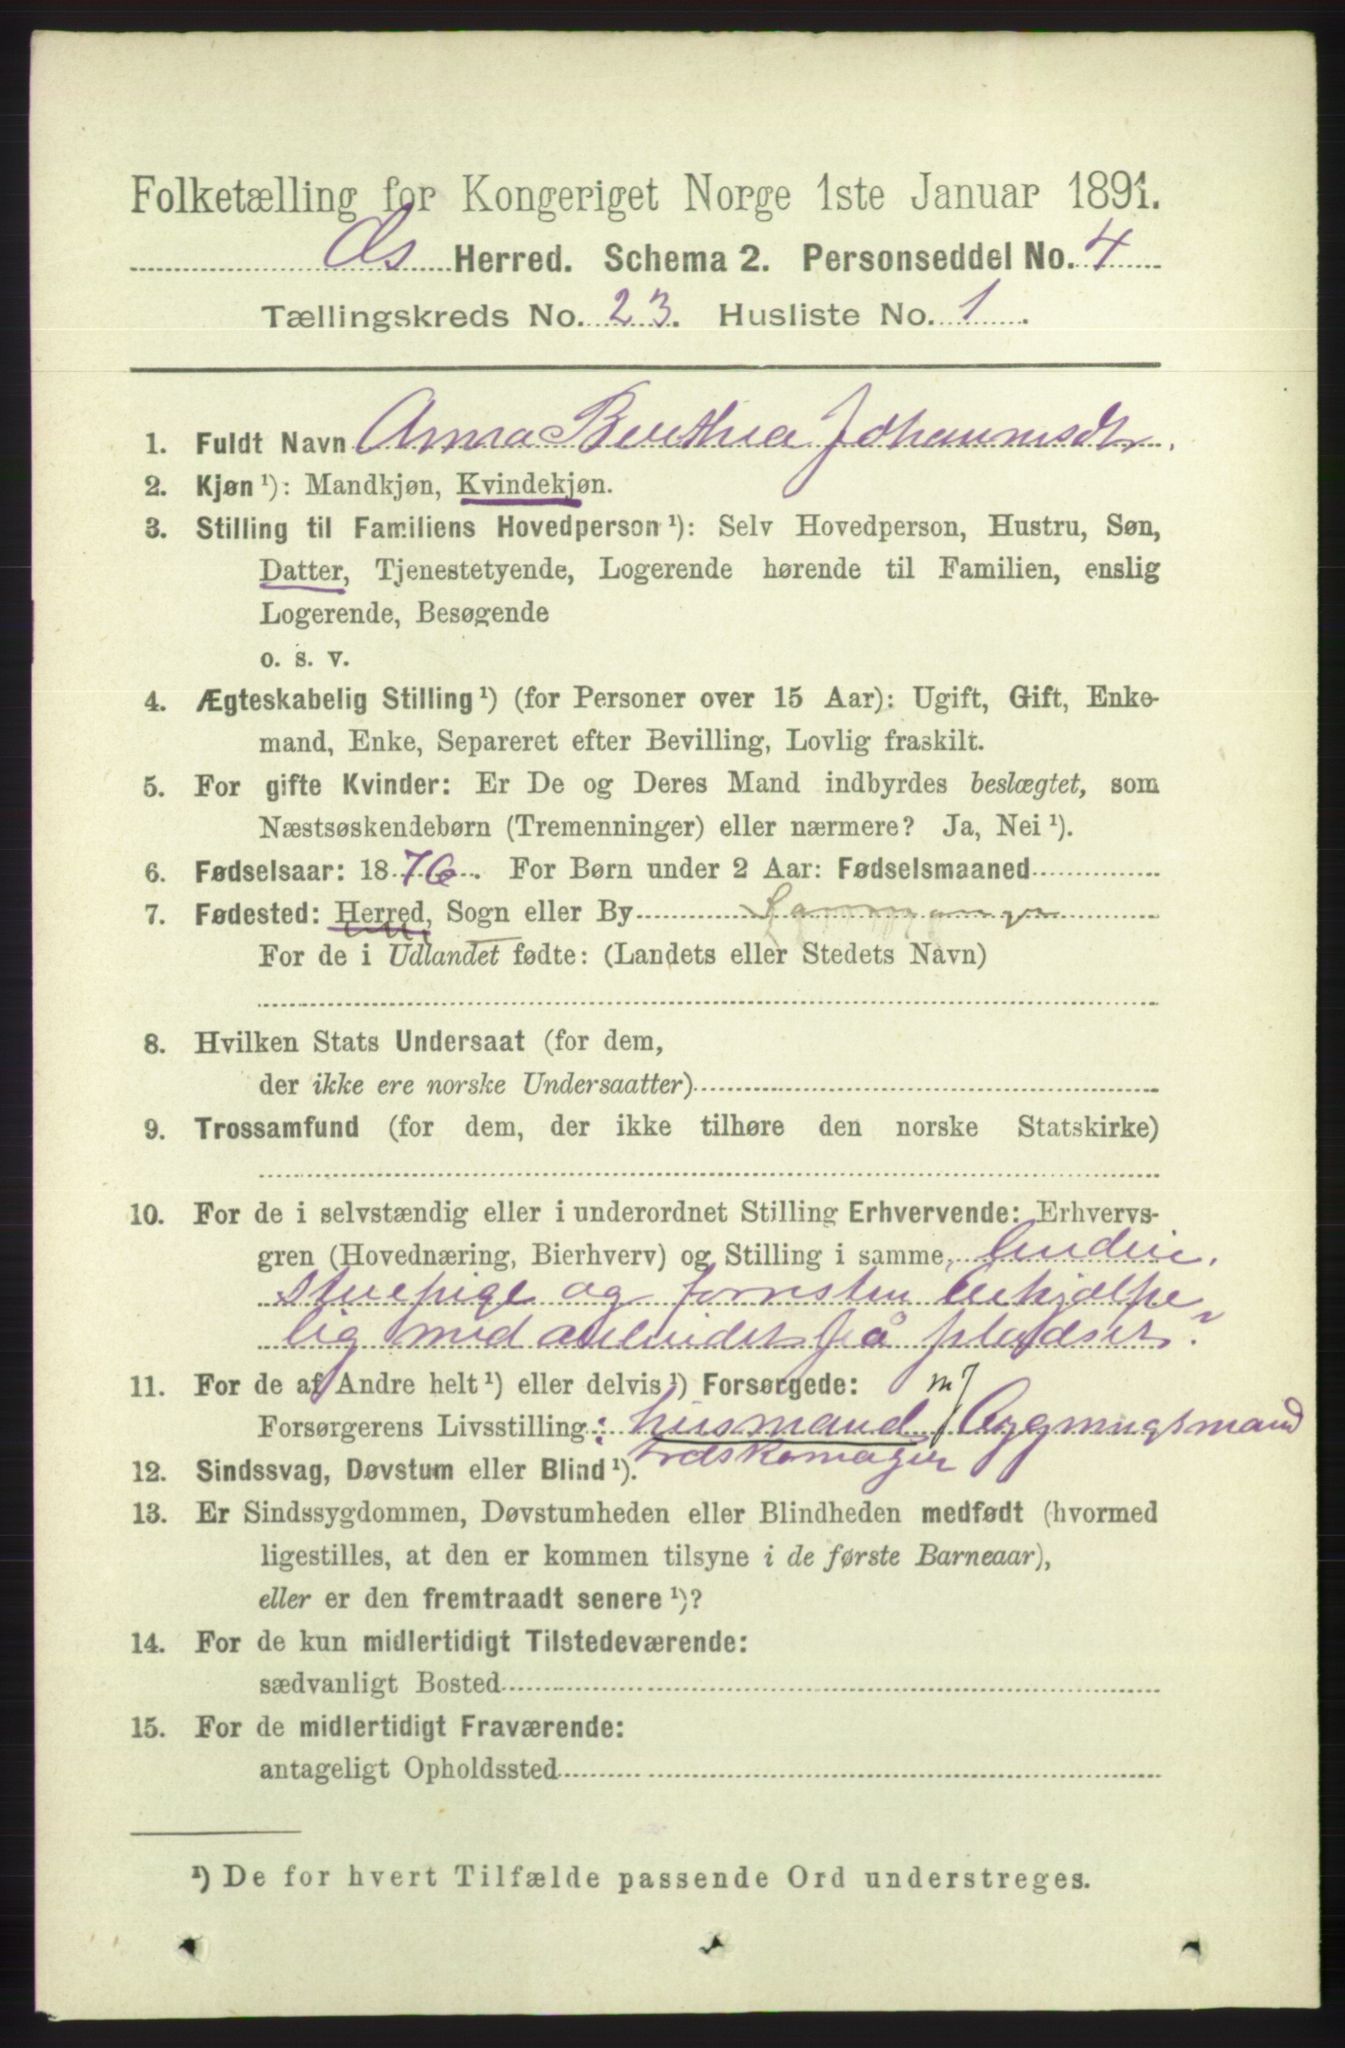 Folketælling for Kongeriget Norge 1ste Januar 1891.
Os Herred. Schema 2. Personseddel No. 4
Tællingskreds No. 23. Husliste No. 1.
1. Fuldt Navn Anna Berthea Johannesdtr.
2. Kjøn ¹): Mandkjøn, Kvindekjøn.
3. Stilling til Familiens Hovedperson ¹): Selv Hovedperson, Hustru, Søn,
Datter, Tjenestetyende, Logerende hørende til Familien, enslig
Logerende, Besøgende
o. s. v.
4. Ægteskabelig Stilling ¹) (for Personer over 15 Aar): Ugift, Gift, Enke-
mand, Enke, Separeret efter Bevilling, Lovlig fraskilt.
5. For gifte Kvinder: Er De og Deres Mand indbyrdes beslægtet, som
Næstsøskendebørn (Tremenninger) eller nærmere? Ja, Nei ¹).
6. Fødselsaar: 1876. For Børn under 2 Aar: Fødselsmaaned
7. Fødested: Herred, Sogn eller By
For de i Udlandet fødte: (Landets eller Stedets Navn)
8. Hvilken Stats Undersaat (for dem,
der ikke ere norske Undersaatter)
9. Trossamfund (for dem, der ikke tilhøre den norske Statskirke)
10. For de i selvstændig eller i underordnet Stilling Erhvervende: Erhvervs-
gren (Hovednæring, Bierhverv) og Stilling i samme
og
lig med på pladset
11. For de af Andre helt ¹) eller delvis ¹) Forsørgede: m/
Forsørgerens Livsstilling: husmand Bygningsmand
12. Sindssvag, Døvstum eller Blind ¹).
13. Er Sindssygdommen, Døvstumheden eller Blindheden medfødt (hvormed
ligestilles, at den er kommen tilsyne i de første Barneaar),
eller er den fremtraadt senere ¹)?
14. For de kun midlertidigt Tilstedeværende:
sædvanligt Bosted
15. For de midlertidigt Fraværende:
antageligt Opholdssted
¹) De for hvert Tilfælde passende Ord understreges.